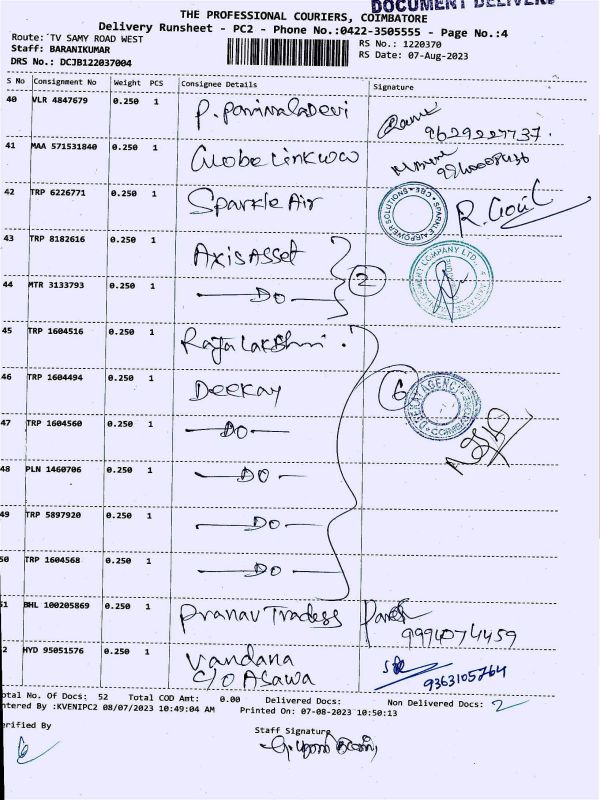 DOCUMENT DELIVERY
THE PROFESSIONAL COURIERS, COIMBATORE
Delivery Runsheet - PC2 - Phone No.:0422-3505555 - Page No.:4
Route: TV SAMY ROAD WEST
RS No.: 1220370
Staff: BARANIKUMAR
RS Date: 07-Aug-2023
DRS No.: DCJB122037004
S No Consignment No Weight PCS Consignee Details Signature
40 VLR 4847679 0.250 1 P. ParimalaDevi
9629227737.
41 MAA 571531840 0.250 1 Globe Linkww
42 TRP 6226771 0.250 1 Sparkle Air
SPARKLE AIRPOWER SOLUTIONS CBE
R. Gouil
43 TRP 8182616 0.250 1 AxisAsset
2
COMPANY LTD.
44 MTR 3133793 0.250 1 — DO —
45 TRP 1604516 0.250 1 RajaLakshmi .
46 TRP 1604494 0.250 1 Deekay
6
AGENCY
COIMBATORE
47 TRP 1604560 0.250 1 — DO —
48 PLN 1460706 0.250 1 — DO —
49 TRP 5897920 0.250 1 — DO —
50 TRP 1604568 0.250 1 — DO —
51 BHL 100205869 0.250 1 Pranav Tradess
9994074459
2 HYD 95051576 0.250 1 Vandana
C/O Asawa
9363105764
otal No. Of Docs: 52 Total COD Amt: 0.00 Delivered Docs: Non Delivered Docs: 2
ntered By :KVENIPC2 08/07/2023 10:49:04 AM Printed On: 07-08-2023 10:50:13
erified By
Staff Signature